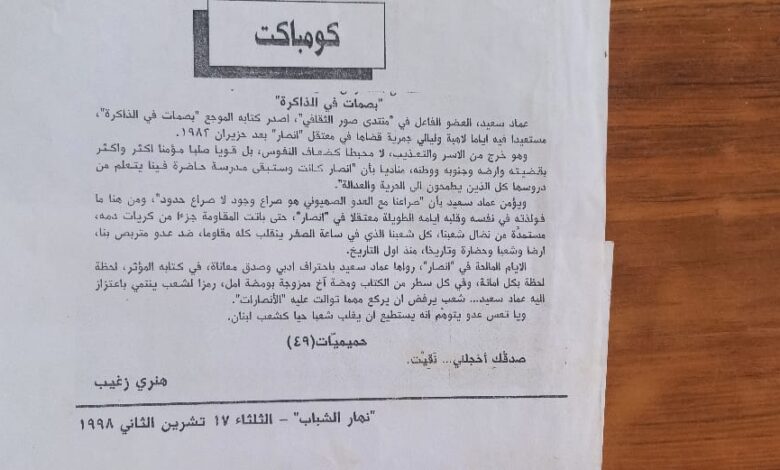 كومباكت
"بصمات في الذاكرة"
عماد سعيد، العضو الفاعل في "منتدى صور الثقافي"، اصدر كتابه الموجع "بصمات في الذاكرة"،
مستعيدا فيه اياما لاهبة وليالي جمرية قضاها في معتقل "انصار" بعد حزيران ١٩٨٢.
وهو خرج من الاسر والتعذيب، لا محبطا كضعاف النفوس، بل قويا صلبا مؤمنا اكثر واكثر
بقضيته وارضه وجنوبه ووطنه، مناديا بأن "انصار كانت وستبقى مدرسة حاضرة فينا يتعلم من
دروسها كل الذين يطمحون الى الحرية والعدالة".
ويؤمن عماد سعيد بأن "صراعنا مع العدو الصهيوني هو صراع وجود لا صراع حدود"، ومن هنا ما
فولذته في نفسه وقلبه ايامه الطويلة معتقلا في "انصار"، حتى باتت المقاومة جزءا من كريات دمه،
مستمدة من نضال شعبنا، كل شعبنا الذي في ساعة الصفر ينقلب كله مقاوما، ضد عدو متربص بنا،
ارضا وشعبا وحضارة وتاريخا، منذ اول التاريخ.
الايام المالحة في "انصار"، رواها عماد سعيد باحتراف ادبي وصدق معاناة، في كتابه المؤثر، لحظة
لحظة بكل امانة، وفي كل سطر من الكتاب ومضة آخ ممزوجة بومضة امل، رمزا لشعب ينتمي باعتزاز
اليه عماد سعيد... شعب يرفض ان يركع مهما توالت عليه "الأنصارات".
ويا تعس عدو يتوهّم انه يستطيع ان يغلب شعبا حيا كشعب لبنان.
حميميّات (٤٩)
صدقُكِ أخجلني... نَقيْت.
هنري زغيب
"نهار الشباب" – الثلثاء ١٧ تشرين الثاني ١٩٩٨